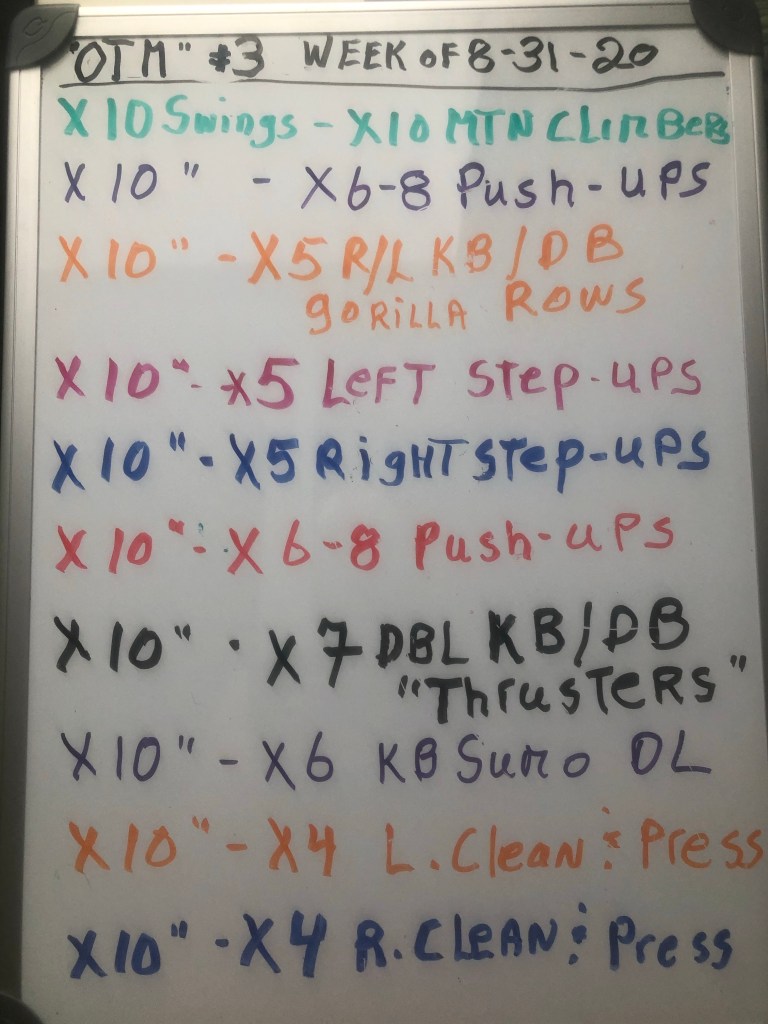 "OTM" #3 WEEK OF 8-31-20
X10 Swings - X10 MTN CLIMBERS
X10 " - X6-8 Push-ups
X10 " - X5 R/L KB/DB
gORiLLA ROWS
X10 " - X5 LEFT STep-ups
X10 " - X5 RigHT STep-ups
X10 " - X6-8 Push-ups
X10 " - X7 DBL KB/DB
"ThrusTeRS"
X10 " - X6 KB Sumo DL
X10 " - X4 L. Clean & Press
X10 " - X4 R. CLEAN & Press